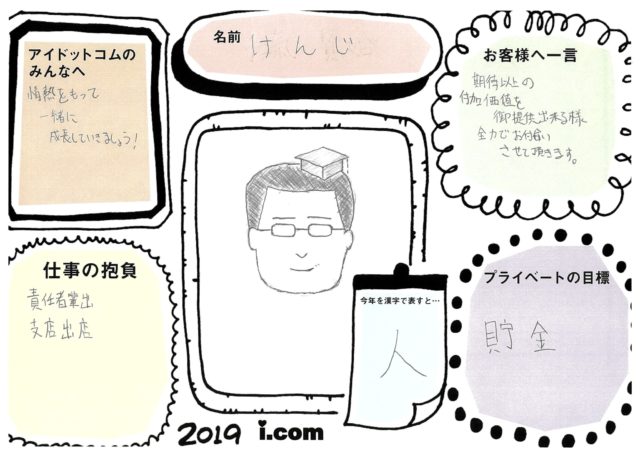 アイドットコムの
みんなへ
情熱をもって
一緒に
成長していきましょう!
名前
けんじ
お客様へ一言
期待以上の
付加価値を
御提供出来る様
全力でお付合い
させて頂きます。
仕事の抱負
責任者輩出
支店出店
今年を漢字で表すと…
人
プライベートの目標
貯金
2019 i.com